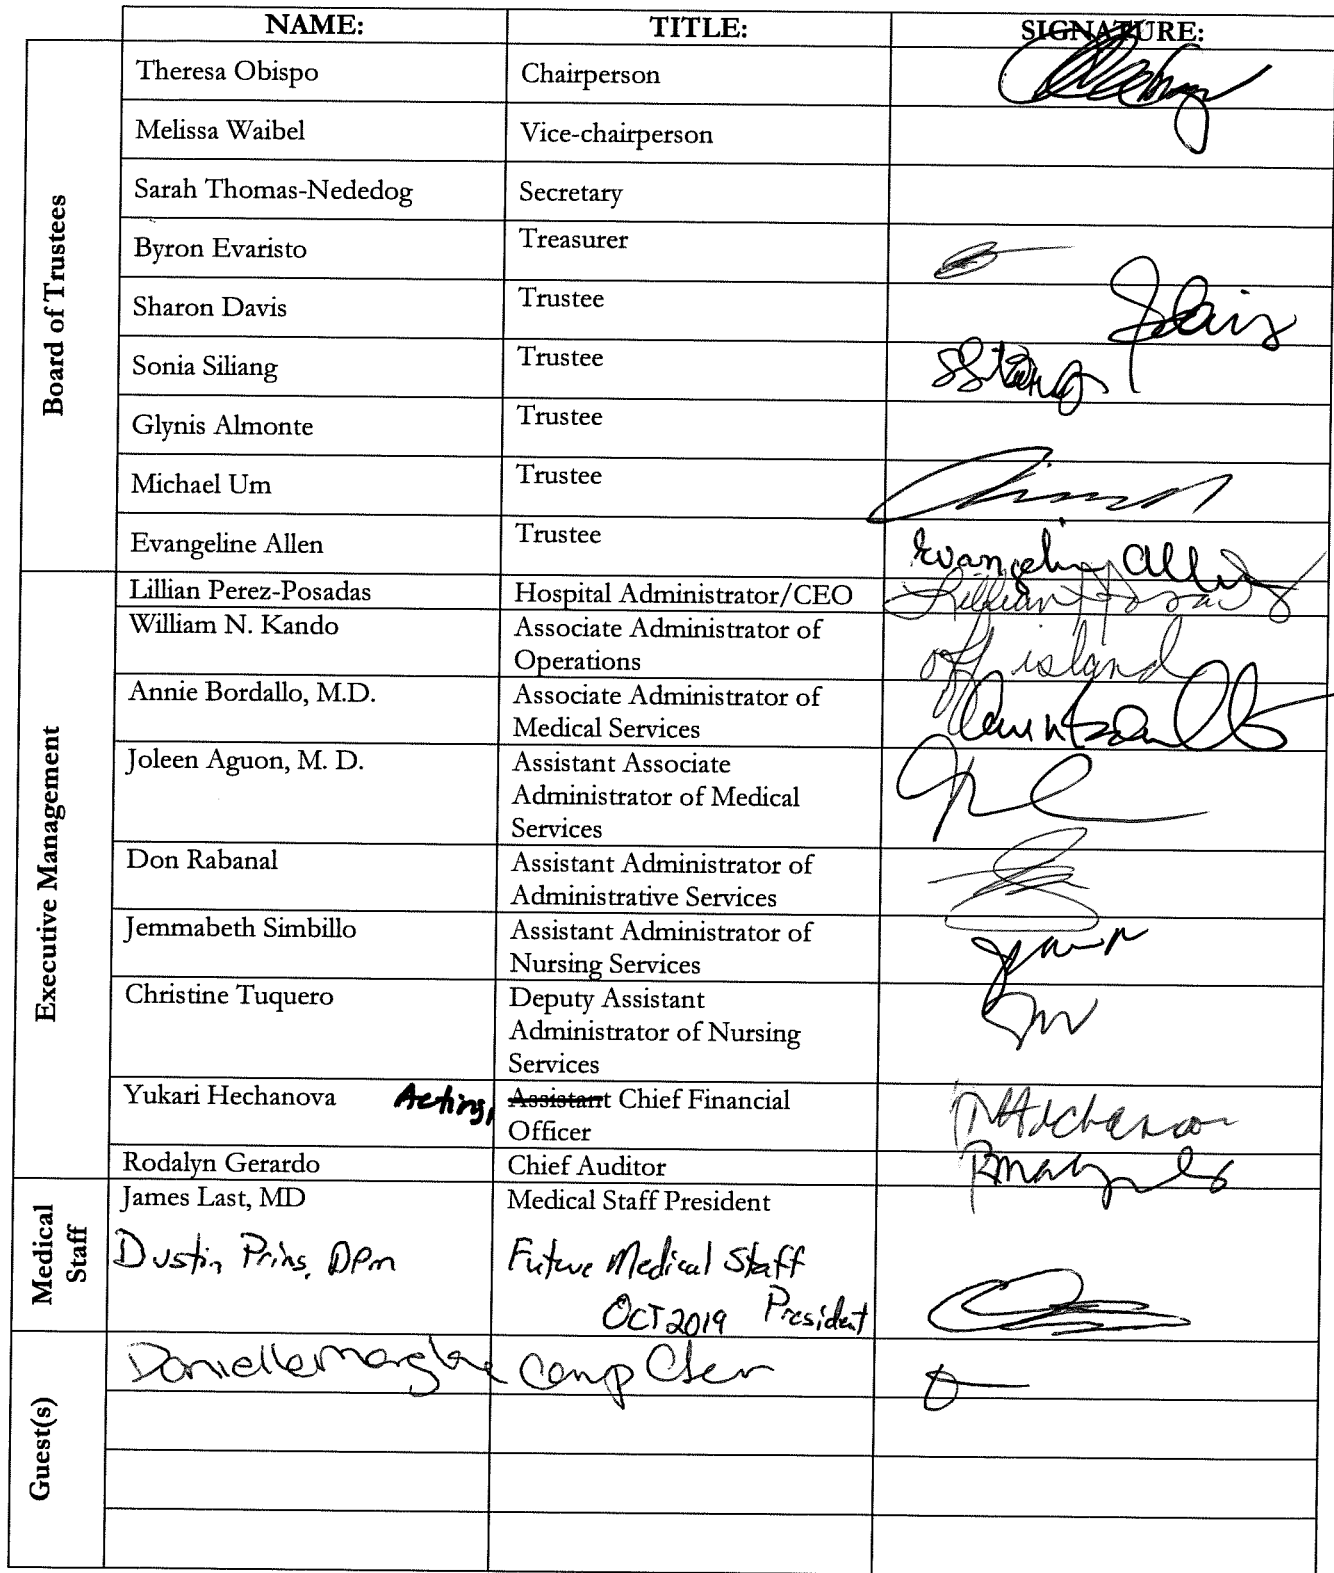 NAME: TITLE: SIGNATURE:
Board of Trustees
Theresa Obispo Chairperson
Melissa Waibel Vice-chairperson
Sarah Thomas-Nededog Secretary
Byron Evaristo Treasurer
Sharon Davis Trustee
Sonia Siliang Trustee
Glynis Almonte Trustee
Michael Um Trustee
Evangeline Allen Trustee Evangeline Allen
Executive Management
Lillian Perez-Posadas Hospital Administrator/CEO Lillian Posadas
William N. Kando Associate Administrator of off island
Operations
Annie Bordallo, M.D. Associate Administrator of
Medical Services
Joleen Aguon, M. D. Assistant Associate
Administrator of Medical
Services
Don Rabanal Assistant Administrator of
Administrative Services
Jemmabeth Simbillo Assistant Administrator of
Nursing Services
Christine Tuquero Deputy Assistant
Administrator of Nursing
Services
Yukari Hechanova Acting, Assistant Chief Financial
Officer
Rodalyn Gerardo Chief Auditor
Medical
Staff
James Last, MD Medical Staff President
Dustin Prins, DPM Future Medical Staff
OCT 2019 President
Guest(s)
Danielle Comp